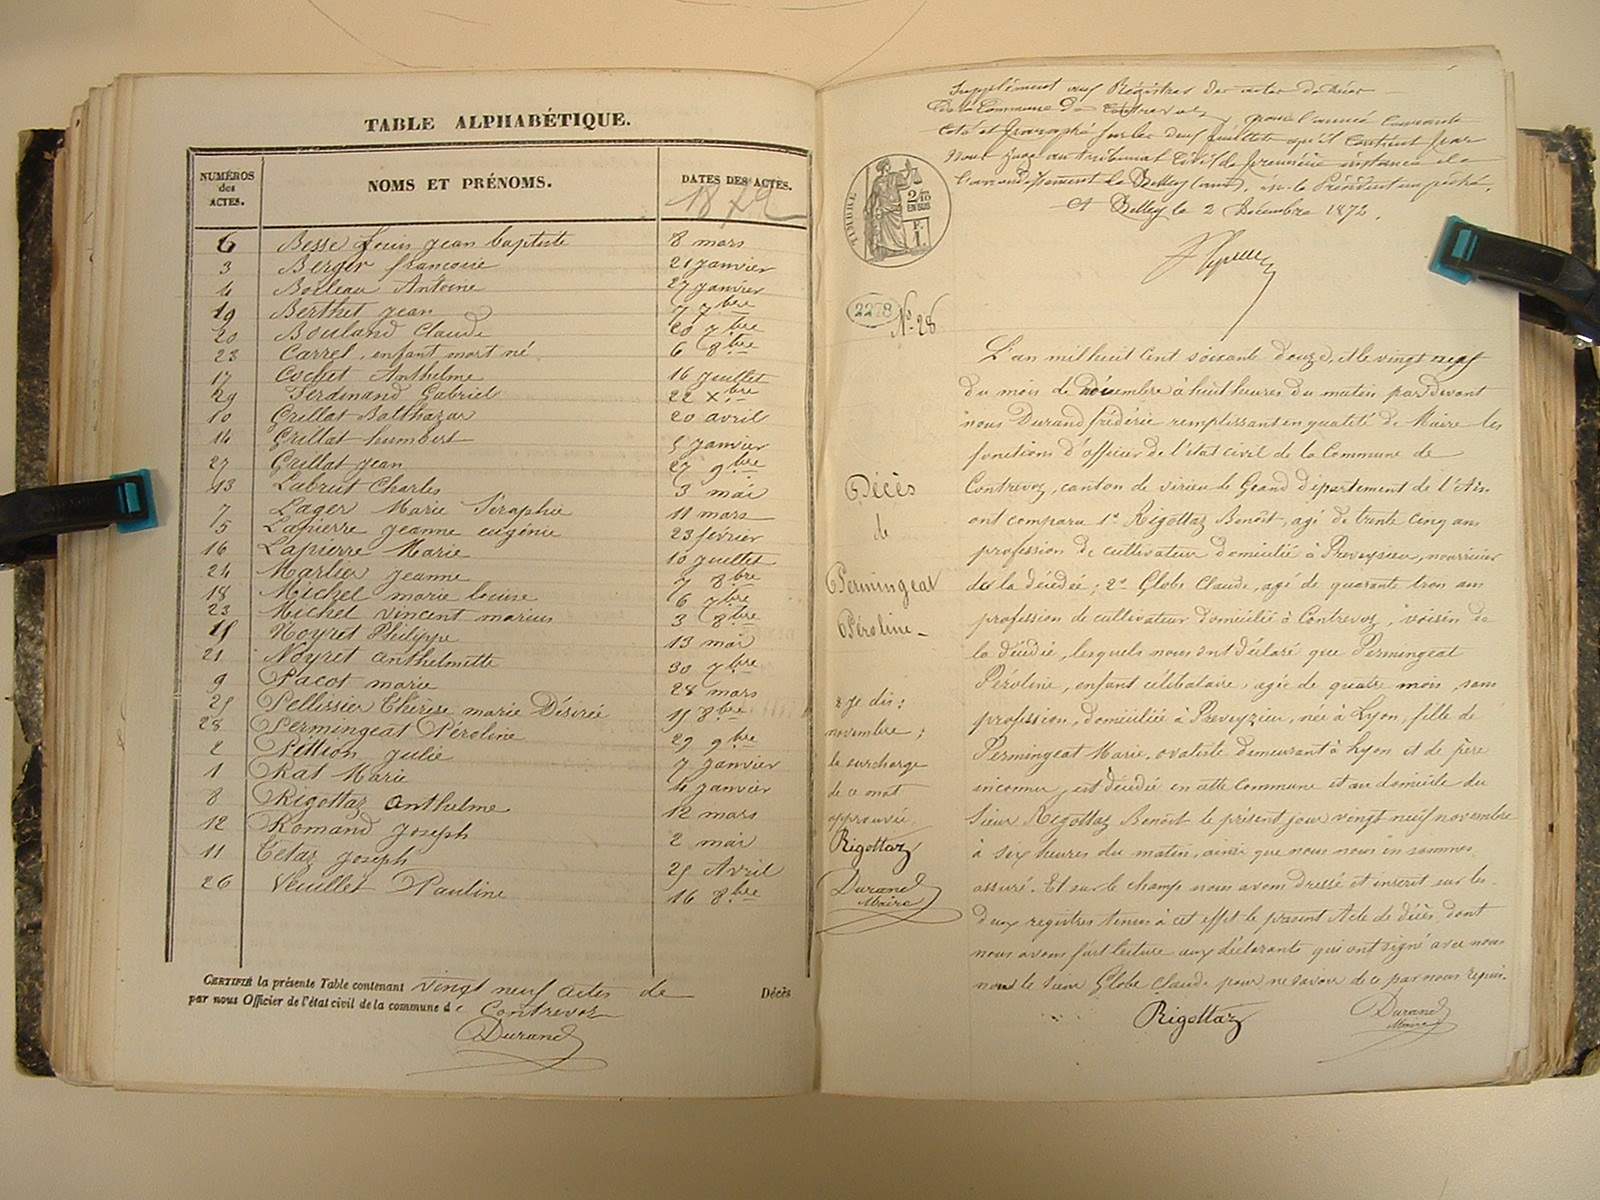 TABLE ALPHABÉTIQUE.
NUMÉROS des ACTES.
NOMS ET PRÉNOMS.
DATES DES ACTES.
1872
6 Besse Louis jean baptiste 8 mars
3 Berger françoise 21 janvier
4 Boileau Antoine 27 janvier
19 Berthet jean 7 7bre
20 Bouland Claude 20 7bre
23 Carrel, enfant mort né 6 8bre
17 Cochet Anthelme 16 juillet
29 Ferdinand Gabriel 22 Xbre
10 Grillat Balthazar 20 avril
14 Grillat humbert 5 janvier
27 Grillat jean 27 9bre
13 Labrut Charles 3 mai
7 Lager Marie Séraphie 11 mars
5 Lapierre jeanne eugénie 23 février
16 Lapierre Marie 10 juillet
24 Marlier jeanne 7 8bre
18 Michel marie louise 6 7bre
23 Michel vincent marius 3 8bre
15 Noyret Philippe 13 mai
21 Noyret anthelmette 30 7bre
9 Pacot marie 28 mars
25 Pellissier Thérèse marie Désirée 15 8bre
28 Permingeat Péroline 29 9bre
2 Pillion julie 7 janvier
1 Rat Marie 4 janvier
8 Rigottaz anthelme 12 mars
12 Romand joseph 2 mai
11 Tétaz joseph 25 Avril
26 Veuillet Pauline 16 8bre
CERTIFIÉ la présente Table contenant vingt neuf actes de Décès
par nous Officier de l'état civil de la commune de Contrevoz
Durand
Supplément aux Régistres des actes de décès
de la Commune de Contrevoz, pour l'année courante
Coté et paraphé sur les deux feuillets qu'il contient par
Nous juge au tribunal Civil de première instance de
l'arrondissement de Belley (ain), in. le Président empêché.
A Belley le 2 Décembre 1872.
TIMBRE
2/10
EN SUS
F.
1.
2278
No. 28
L'an mil huit Cent soixante douze, et le vingt neuf
du mois de novembre à huit heures du matin par devant
nous Durand frédéric remplissant en qualité de Maire les
fonctions d'officier de l'état civil de la Commune de
Contrevoz, canton de virieu le Grand département de l'Ain
ont comparu 1° Rigottaz Benoit, agé de trente cinq ans
profession de cultivateur domicilié à Preveyzieu, nourricier
de la décédée; 2° Globe Claude, agé de quarante trois ans
profession de cultivateur domicilié à Contrevoz, voisin de
la décédée, lesquels nous ont déclaré que Permingeat
Péroline, enfant célibataire, agée de quatre mois, sans
profession, domiciliée à Preveyzieu, née à Lyon, fille de
Permingeat Marie, ovaliste demeurant à Lyon et de père
inconnu, est décédée en cette Commune et au domicile du
Sieur Rigottaz Benoit le présent jour vingt neuf novembre
à six heures du matin, ainsi que nous nous en sommes
assuré. Et sur le champ nous avons dressé et inscrit sur les
deux registres tenus à cet effet le présent Acte de décès, dont
nous avons fait lecture aux déclarants qui ont signé avec nous
non le sieur Globe Claude, pour ne savoir de ce par nous requis.
Rigottaz
Durand
Maire
Décès
de
Permingeat
Péroline
je dis:
novembre;
la surcharge
de ce mot
approuvée
Rigottaz
Durand
Maire